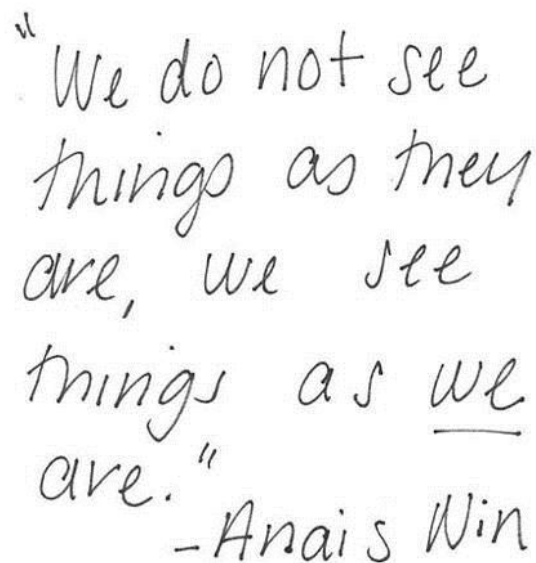 "We do not see
things as they
are, we see
things as we
are."
-Anais Nin